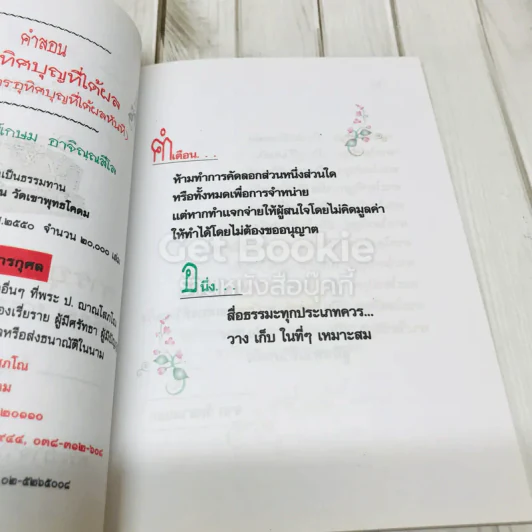 คำสอน
อุทิศบุญที่ได้ผล
การอุทิศบุญที่ได้ผลทันที)
เกษม อาจิณฺณสีโล
เป็นธรรมทาน
วัดเขาพุทธโคดม
.๒๕๕๐ จำนวน ๒๐,๐๐๐ เล่ม
ารกุศล
อื่นๆ ที่พระ ป. ญาณโสภโณ
องเรี่ยราย ผู้มีศรัทธา
หรือส่งธนาณัติในนาม
ภโณ
๒๐๑๑๐
๙๔๔, ๐๓๘-๓๑๒-๖๐๘
๐๒-๕๒๖๕๐๐๘
คำเตือน...
ห้ามทำการคัดลอกส่วนหนึ่งส่วนใด
หรือทั้งหมดเพื่อการจำหน่าย
แต่หากทำแจกจ่ายให้ผู้สนใจโดยไม่คิดมูลค่า
ให้ทำได้โดยไม่ต้องขออนุญาต
Get Bookie
หนังสือบุ๊คกี้
อนึ่ง...
สื่อธรรมะทุกประเภทควร...
วาง เก็บ ในที่ๆ เหมาะสม